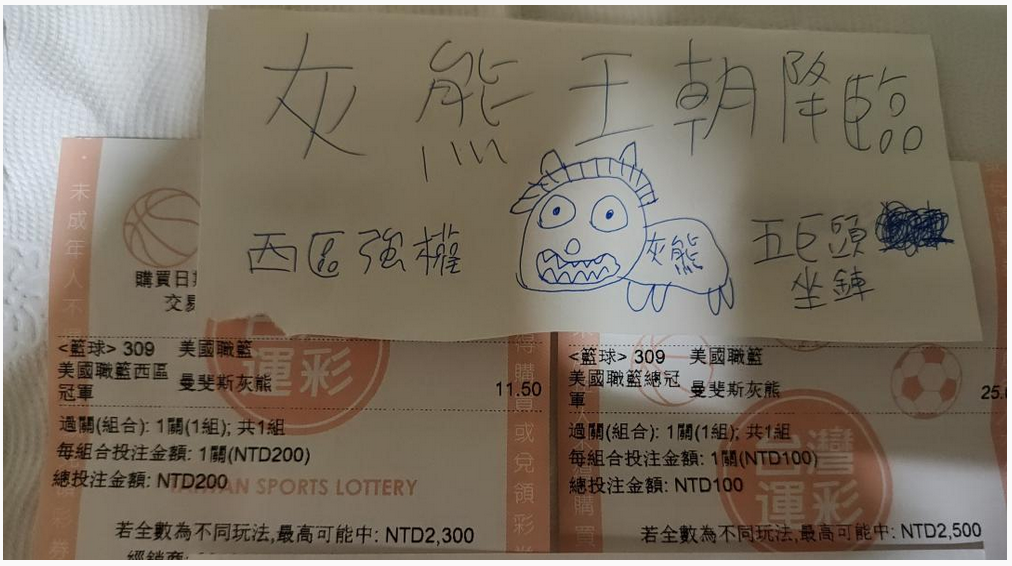 灰熊王朝降臨
西區強權
灰熊
五巨頭
坐鎮
未成年人不
購買日
交易
<籃球> 309 美國職籃
美國職籃西區
冠軍
曼斐斯灰熊
11.50
過關(組合): 1關(1組); 共1組
每組合投注金額: 1關(NTD200)
總投注金額: NTD200
運彩
TAIWAN SPORTS LOTTERY
若全數為不同玩法,最高可能中: NTD2,300
經銷商:
得購買或兌領彩券
<籃球> 309 美國職籃
美國職籃總冠
軍
曼斐斯灰熊
25.
過關(組合): 1關(1組); 共1組
每組合投注金額: 1關(NTD100)
總投注金額: NTD100
台灣
運彩
若全數為不同玩法,最高可能中: NTD2,500